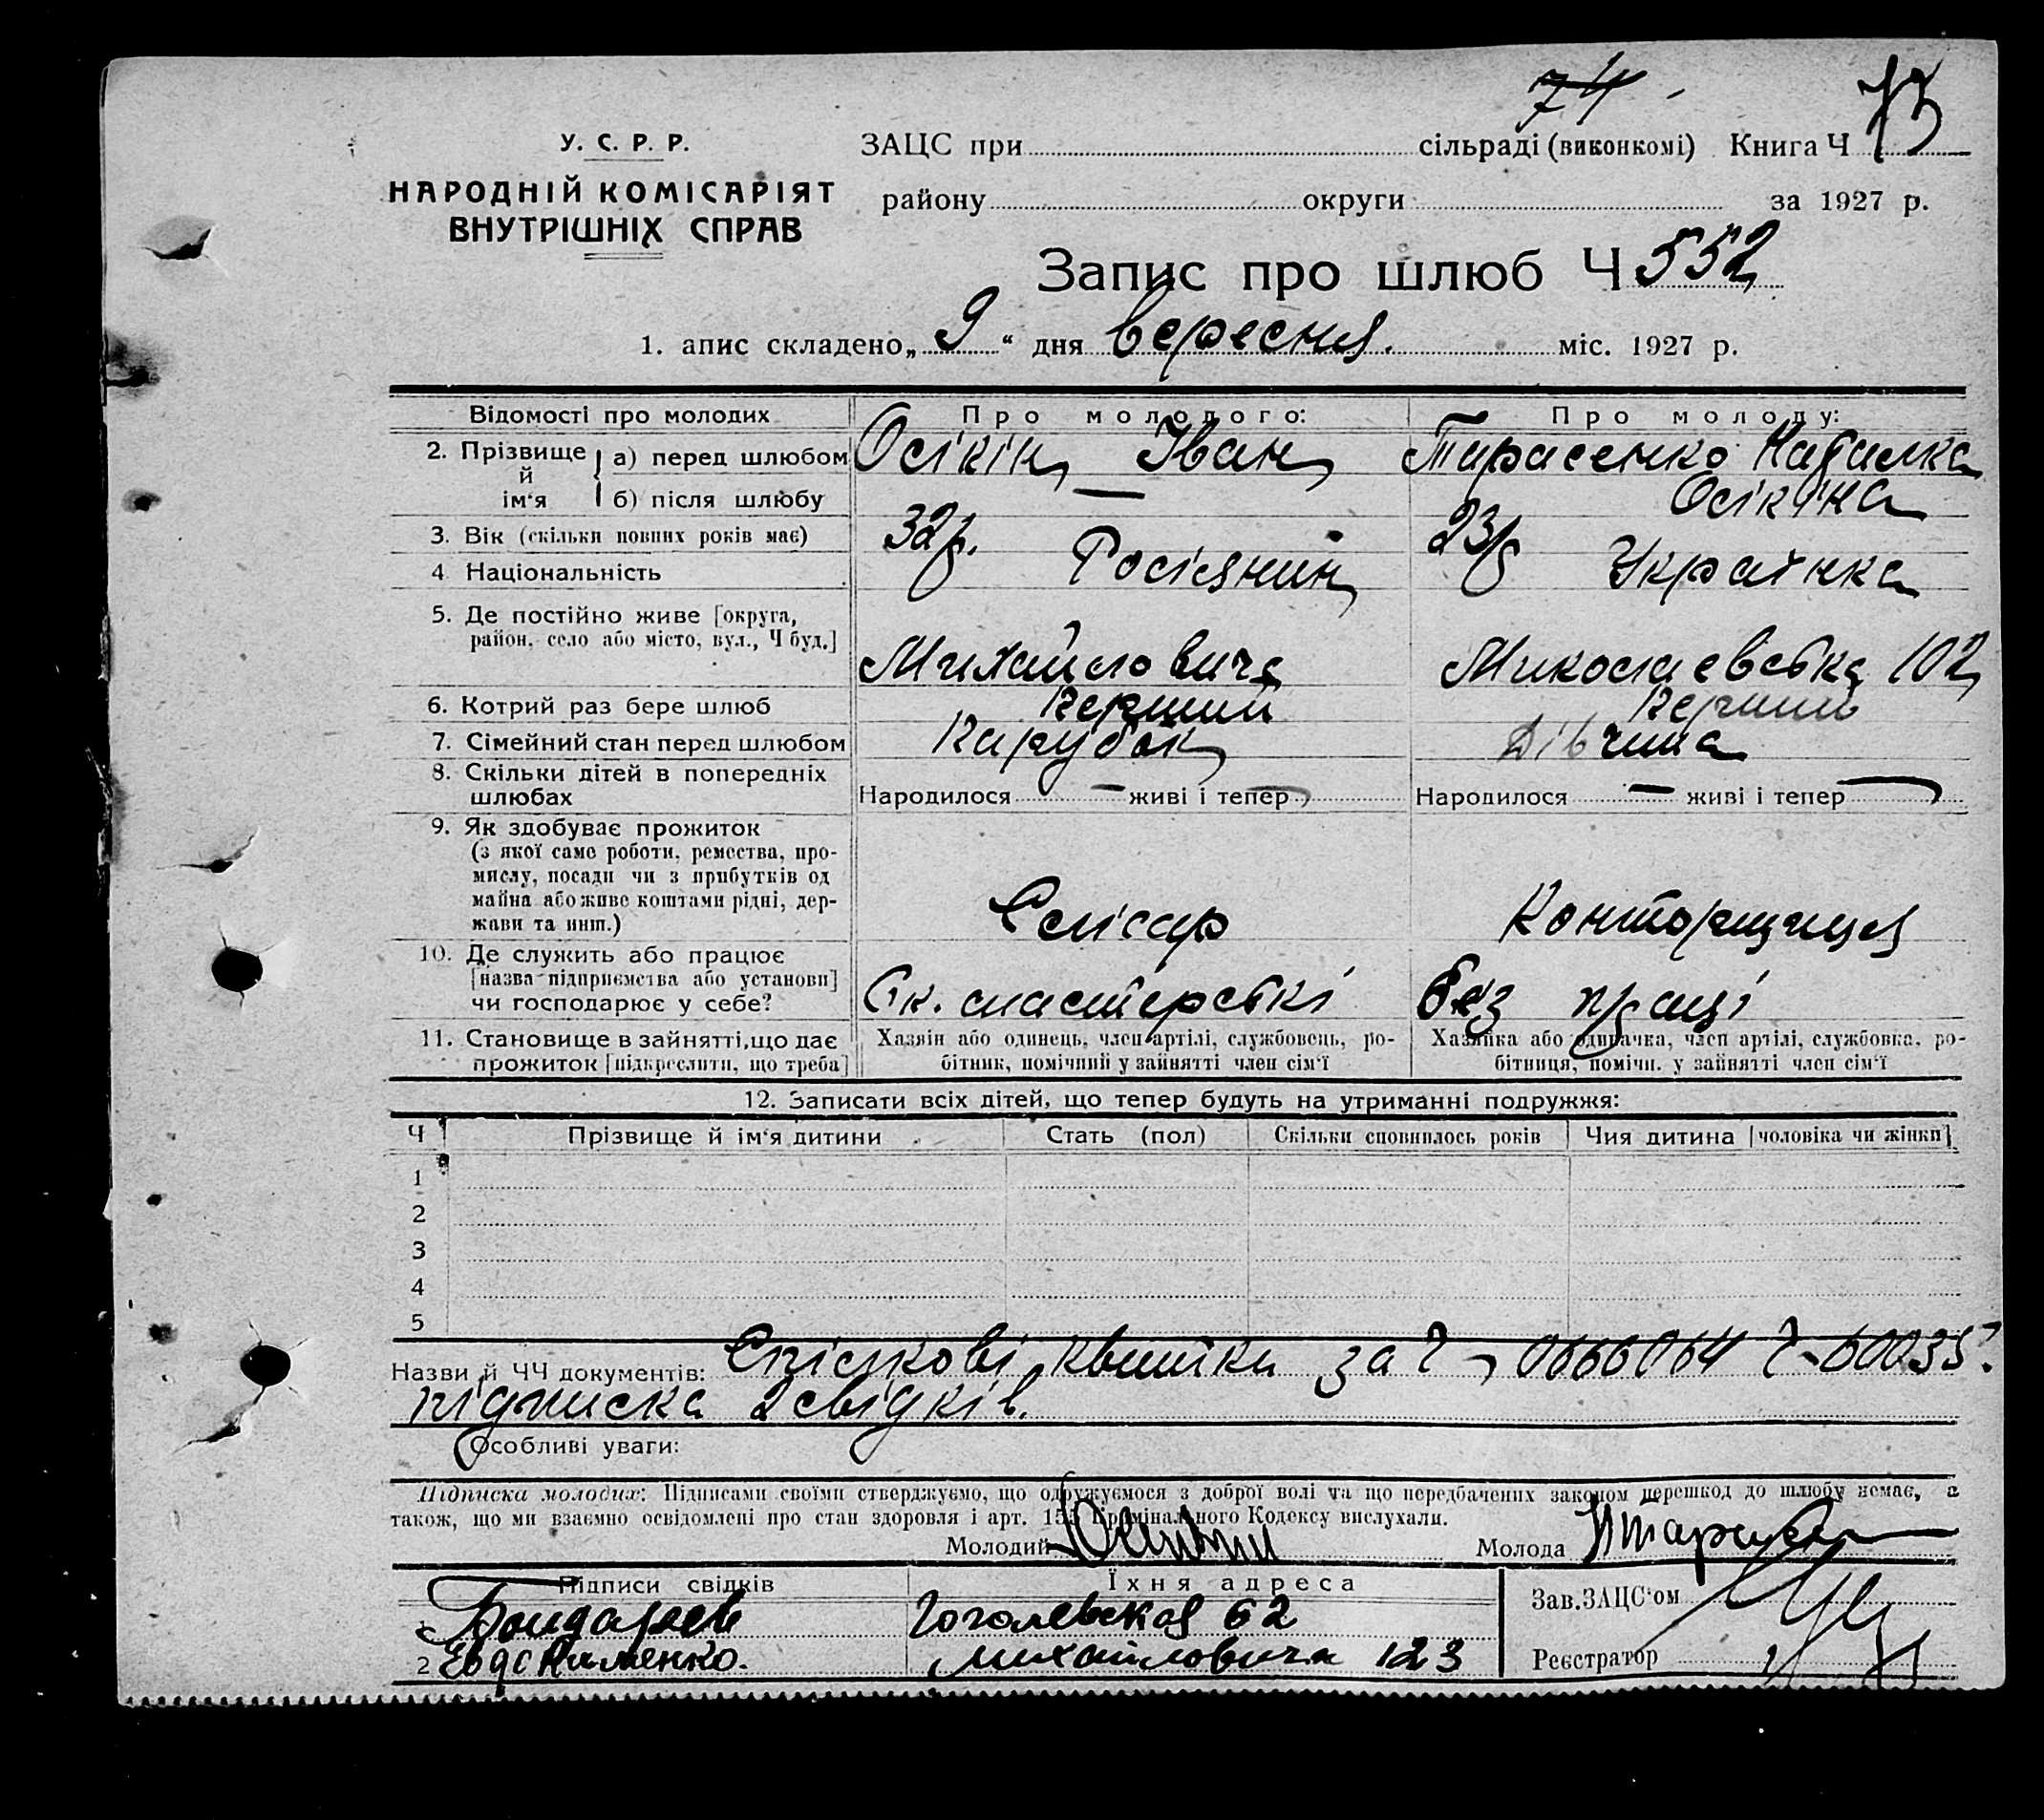 74 73
У. С. Р. Р. ЗАЦС при сільраді (виконкомі) Книга Ч
НАРОДНІЙ КОМІСАРІЯТ
ВНУТРІШНІХ СПРАВ
району округи за 1927 р.
Запис про шлюб Ч 552
1. апис складено „ 9 “ дня вересня. міс. 1927 р.
Відомості про молодих Про молодого: Про молоду:
2. Прізвище й ім‘я а) перед шлюбом Осікін Іван Тарасенко Наталка
б) після шлюбу — Осікіна
3. Вік (скільки повних років має) 32 р. 23 р
4 Національність Росіянин Українка
5. Де постійно живе [округа,
район, село або місто, вул., Ч буд.] Михайловича Миколаєвська 102
6. Котрий раз бере шлюб Перший Перший
7. Сімейний стан перед шлюбом Парубок Дівчина
8. Скільки дітей в попередніх
шлюбах Народилося — живі і тепер Народилося — живі і тепер —
9. Як здобуває прожиток
(з якої саме роботи, ремества, про-
мислу, посади чи з прибутків од
майна або живе коштами рідні, дер-
жави та инш.) Слісар Конторщиця
10. Де служить або працює
[назва підприємства або установи]
чи господарює у себе? майстерські без праці
11. Становище в зайнятті, що дає
прожиток [підкреслити, що треба]
Хазяїн або одинець, член артілі, службовець, ро-
бітник, помічний у зайнятті член сім‘ї
Хазяйка або одиначка, член артілі, службовка, ро-
бітниця, помічн. у зайнятті член сім‘ї
12. Записати всіх дітей, що тепер будуть на утриманні подружжя:
Ч Прізвище й ім‘я дитини Стать (пол) Скільки сповнилось років Чия дитина [чоловіка чи жінки]
1
2
3
4
5
Назви й ЧЧ документів: Спілкові квитки за Ч 0666064 Ч 60035
підписка 2 свідків.
Особливі уваги:
Підписка молодих: Підписами своїми стверджуємо, що одружуємося з доброї волі та що передбачених законом перешкод до шлюбу немає, а
також, що ми взаємно освідомлені про стан здоровля і арт. 155 Кримінального Кодексу вислухали.
Молодий Молода
Підписи свідків Їхня адреса Зав.ЗАЦС‘ом
1 Бондарев Гоголевская 62
2 Михайловича 123 Реєстратор